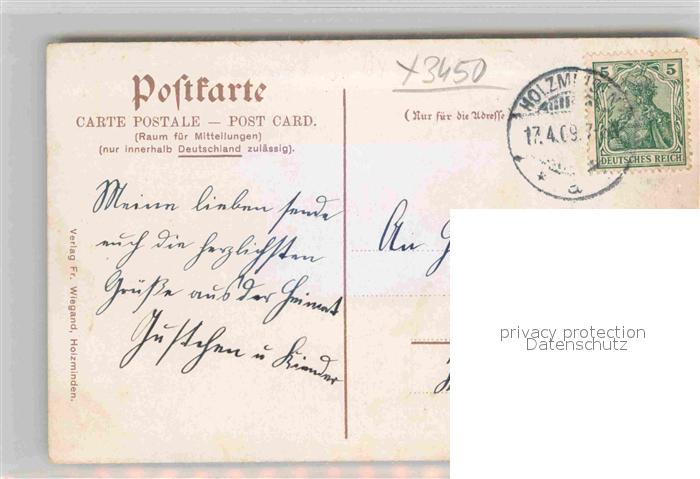 x3450
Postkarte
CARTE POSTALE — POST CARD.
(Raum für Mitteilungen)
(nur innerhalb Deutschland zulässig).
(Nur für die Adresse
HOLZMINDEN
17.4.09.7-
a
5 5
DEUTSCHES REICH
Meine lieben sende
euch die herzlichsten
Grüße aus der Heimat
Justchen u Kinder
An
Verlag Fr. Wiegand, Holzminden.
privacy protection
Datenschutz